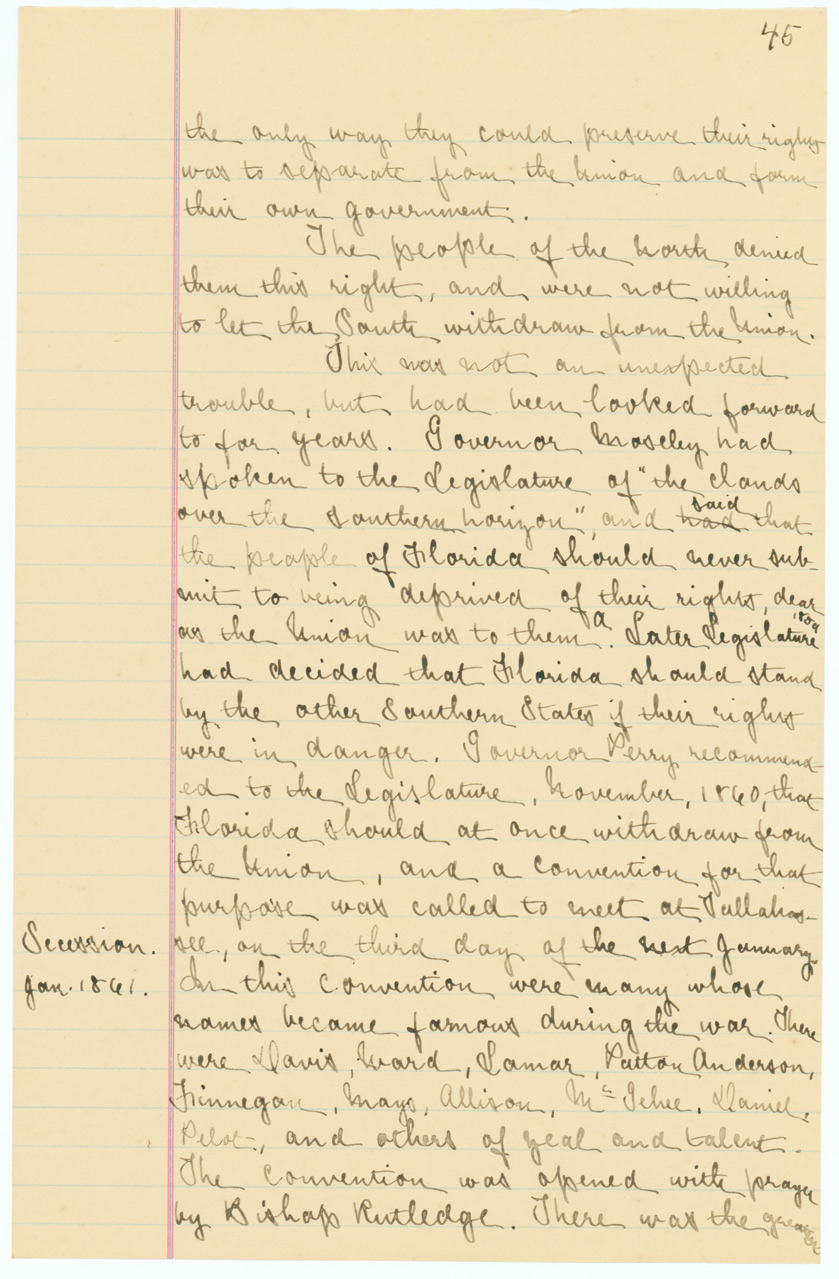 45
the only way they could preserve their rights
was to separate from the Union and form
their own government.
The people of the North denied
them this right, and were not willing
to let the South withdraw from the Union.
This was not an unexpected
trouble, but had been looked forward
to for years. Governor Moseley had
spoken to the Legislature of "the clouds
said
over the southern horizon", and had that
the people of Florida should never sub-
mit to being deprived of their rights, dear
as the Union was to them. a Later Legislature, too,
had decided that Florida should stand
by the other Southern States if their rights
were in danger. Governor Perry recommend-
ed to the Legislature, November, 1860, that
Florida should at once withdraw from
the Union, and a convention for that
purpose was called to meet at Tallahas-
Secession. see, on the third day of the next January.
Jan. 1861. In this convention were many whose
names became famous during the war. There
were Davis, Ward, Lamar, Patton Anderson,
Finnegan, Mays, Allison, McGehee, Daniel,
Pelot, and others of zeal and talent.
The convention was opened with prayer
by Bishop Rutledge. There was the greatest